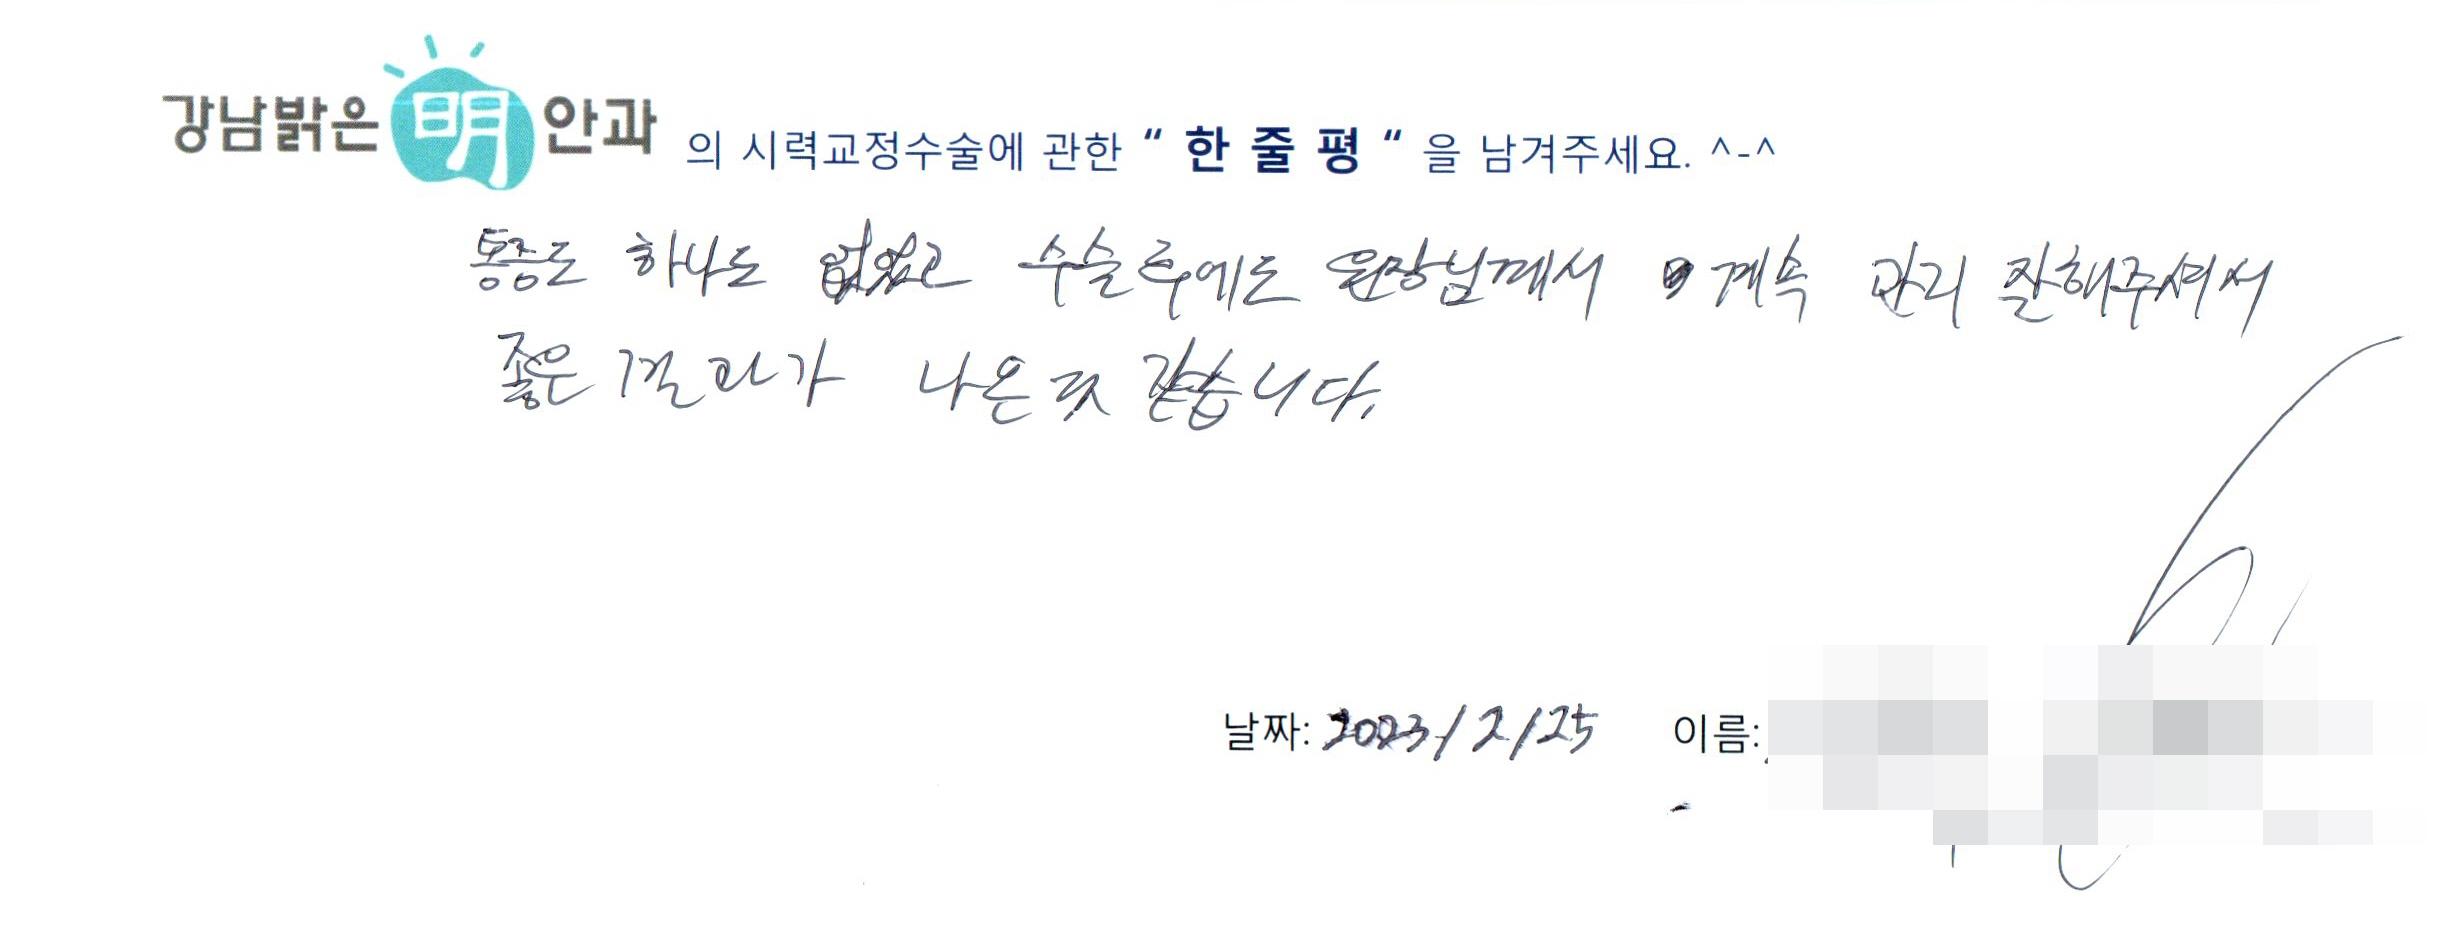 강남밝은明안과 의 시력교정수술에 관한 “ 한 줄 평 “ 을 남겨주세요. ^-^
통증도 하나도 없었고 수술후에도 원장님께서 계속 관리 잘해주셔서
좋은 결과가 나온 것 같습니다.
날짜: 2023/2/25 이름: